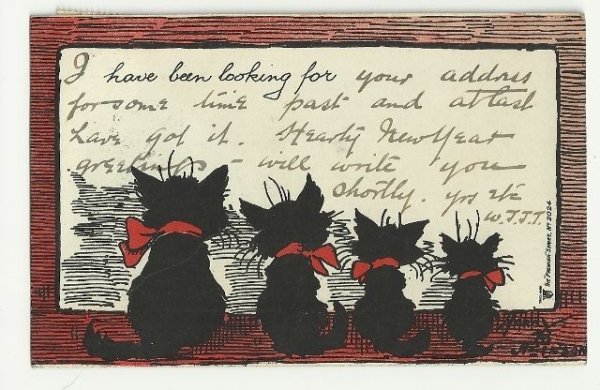 I have been looking for your address
for some time past and at last
have got it. Hearty New Year
greetings - will write you
shortly. yrs etc
W.T.T.T.
The "Pawnee" Series, No 2024